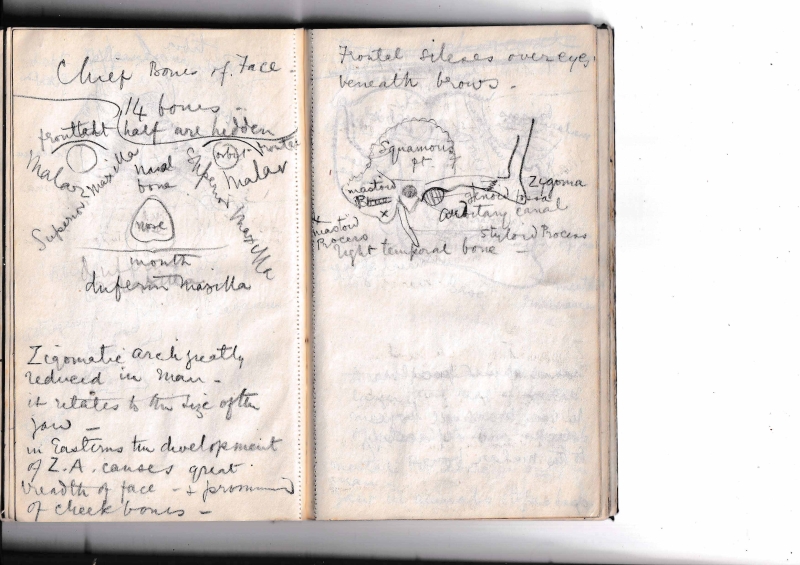 Chief Bones of Face -
14 bones -
half are hidden
frontal
orbit
frontal
Malar
Superior Maxilla
nasal
bone
Superior Maxilla
Malar
nose
month
Inferior Maxilla
Zigomatic arch greatly
reduced in man -
it relates to the size of the
jaw -
in Easterns the development
of Z.A. causes great
breadth of face - +
of cheek bones -
Frontal sileses over eyes
beneath brows -
Squamous
pt
mastoid
x
Zigoma
Auditary canal
x mastoid
Process
Styloid Process
right temporal bone -